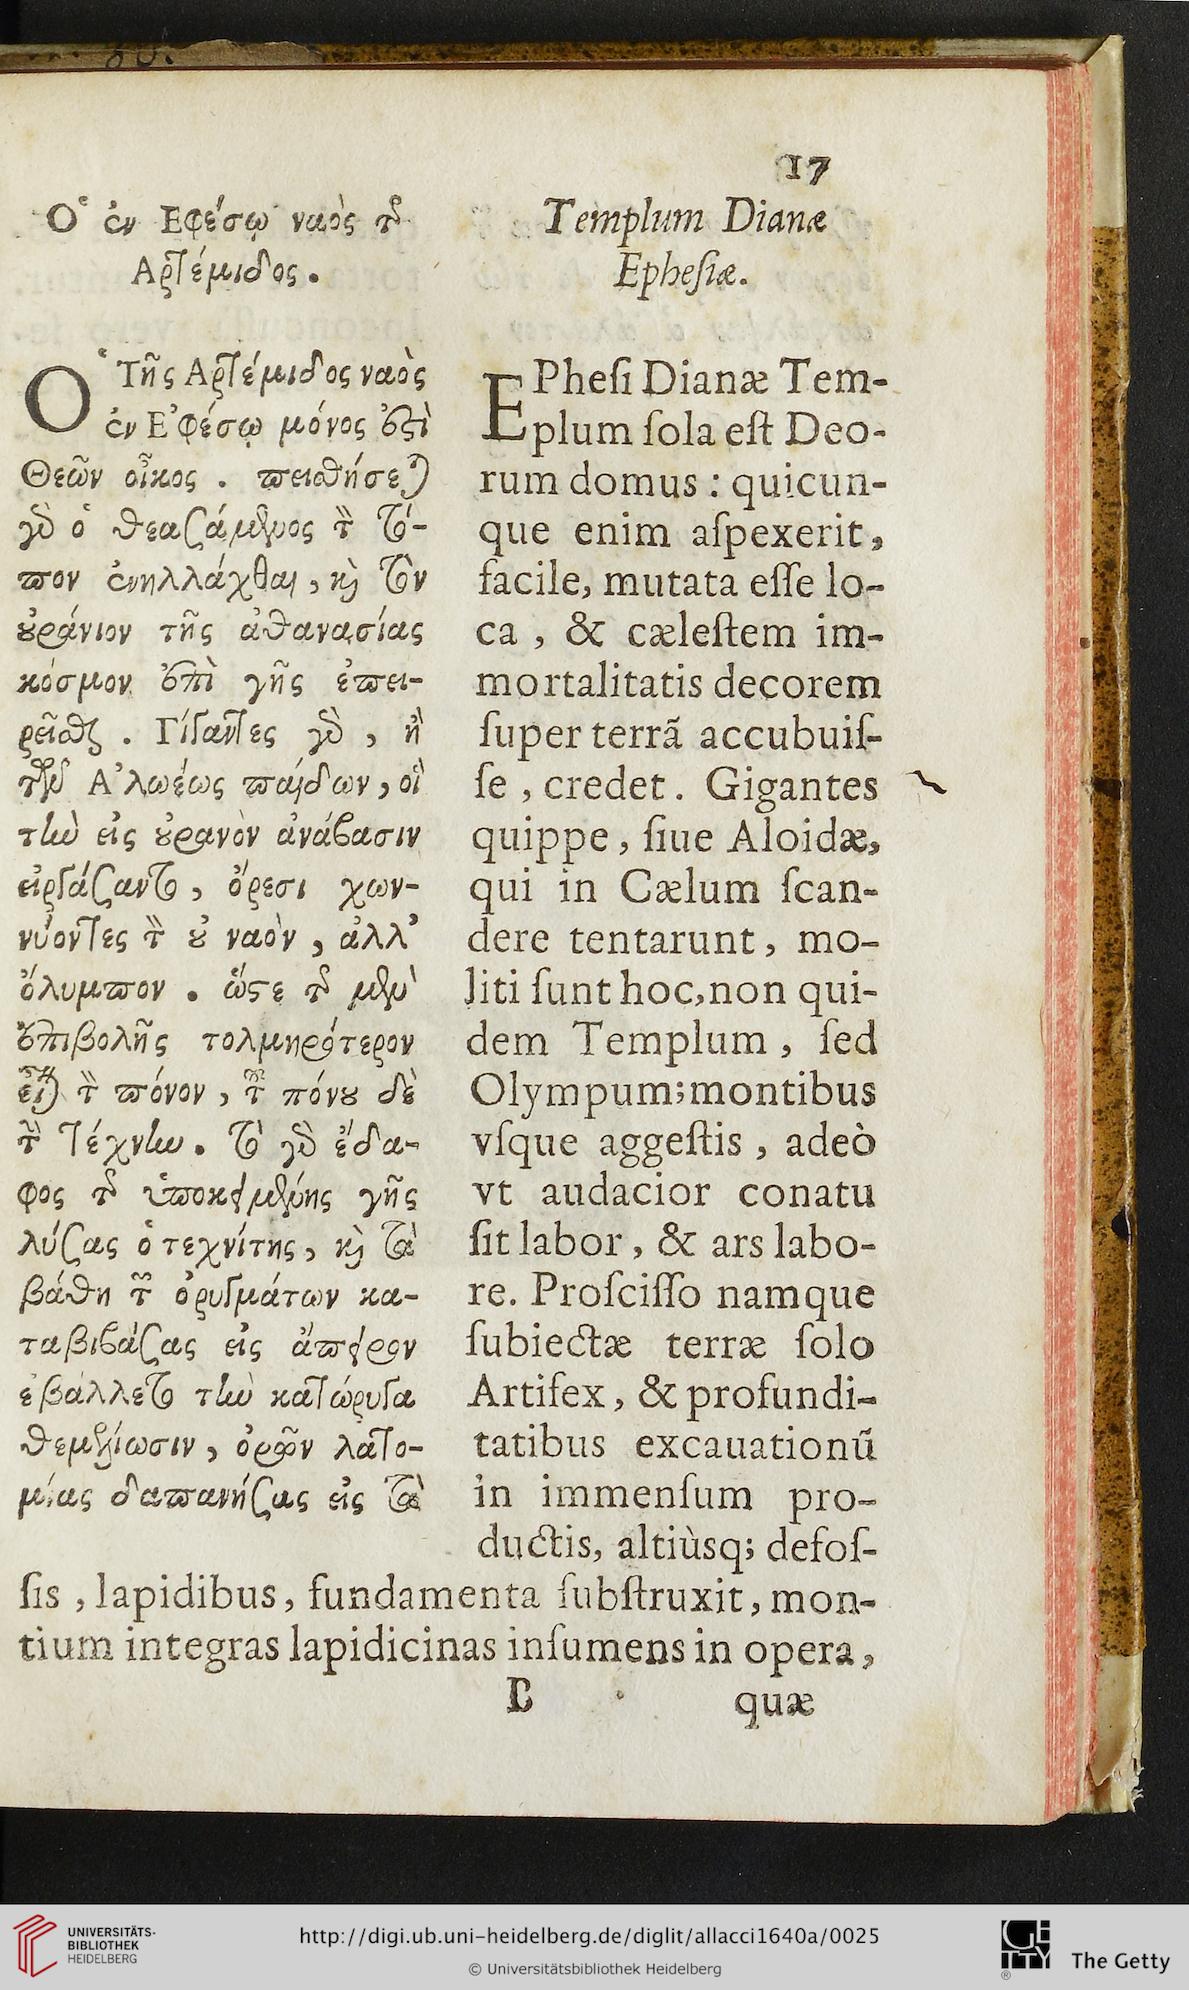 17
Ὁ ἐν Εφέσῳ ναὸς τῆς
Αρτέμιδος.
Ὁ Τῆς Αρτέμιδος ναὸς
ἐν Ἐφέσῳ μόνος ἐστὶ
Θεῶν οἶκος . πεισθήσεται
γὰρ ὁ θεασάμενος τὸν τό-
πον ἐνηλλάχθαι, καὶ τὸν
οὐράνιον τῆς ἀθανασίας
κόσμον ἐπὶ γῆς ἐπει-
ρεῖσθαι . Γίγαντες γὰρ , ἢ
τῶν Ἀλωέως παίδων, οἳ
τὴν εἰς οὐρανὸν ἀνάβασιν
εἰργάσαντο, ὄρεσι χων-
νύοντες τὸν οὐ ναὸν, ἀλλ’
ὄλυμπον . ὥστε τῆς μὲν
ἐπιβολῆς τολμηρότερον
εἶναι τὸν πόνον, τοῦ πόνου δὲ
τὴν τέχνην. Τὸ γὰρ ἔδα-
φος τῆς ὑποκειμένης γῆς
λύσας ὁ τεχνίτης, καὶ τὰ
βάθη τῶν ὀρυγμάτων κα-
ταβιβάσας εἰς ἄπειρον
ἐβάλλετο τὴν κατώρυγα
θεμελίωσιν, ὀρῶν λατο-
μίας δαπανήσας εἰς τὰ
Templum Dianæ
Ephesiæ.
EPhesi Dianæ Tem-
plum ſola eſt Deo-
rum domus : quicun-
que enim aſpexerit,
facile, mutata eſſe lo-
ca , & cæleſtem im-
mortalitatis decorem
ſuper terrã accubuiſ-
ſe , credet. Gigantes
quippe, ſiue Aloidæ,
qui in Cælum ſcan-
dere tentarunt, mo-
liti ſunt hoc, non qui-
dem Templum , ſed
Olympum; montibus
vſque aggeſtis , adeò
vt audacior conatu
ſit labor, & ars labo-
re. Proſciſſo namque
ſubiectæ terræ ſolo
Artifex, & profundi-
tatibus excauationũ
in immenſum pro-
ductis, altiùsq; defoſ-
ſis , lapidibus, fundamenta ſubſtruxit, mon-
tium integras lapidicinas inſumens in opera,
B quæ
UNIVERSITÄTS-
BIBLIOTHEK
HEIDELBERG
http://digi.ub.uni-heidelberg.de/diglit/allacci1640a/0025
© Universitätsbibliothek Heidelberg
GETTY
The Getty